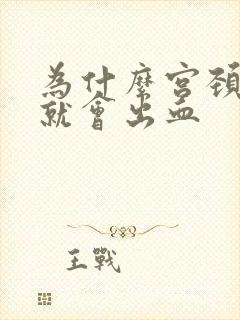 為什麼宮頸
就會出血
王戰